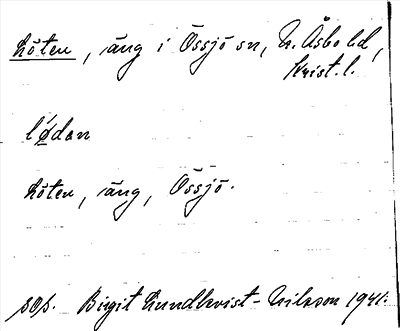 Löten, äng i Össjö sn, N. Åsbo hd,
Krist. l.
lǿdən
Löten, äng, Össjö.
pop. Birgit Lundkvist-Nilsson 1941.